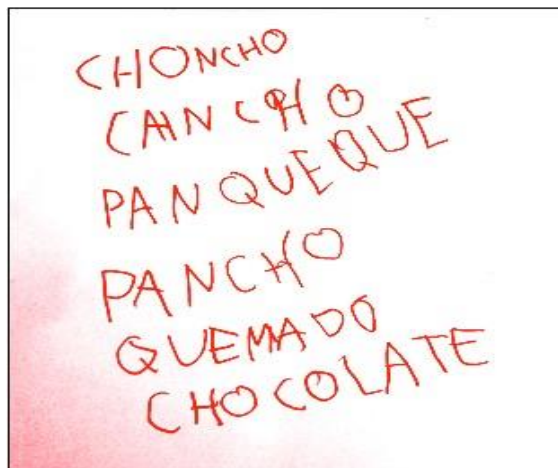 CHONCHO
CANCHO
PANQUEQUE
PANCHO
QUEMADO
CHOCOLATE